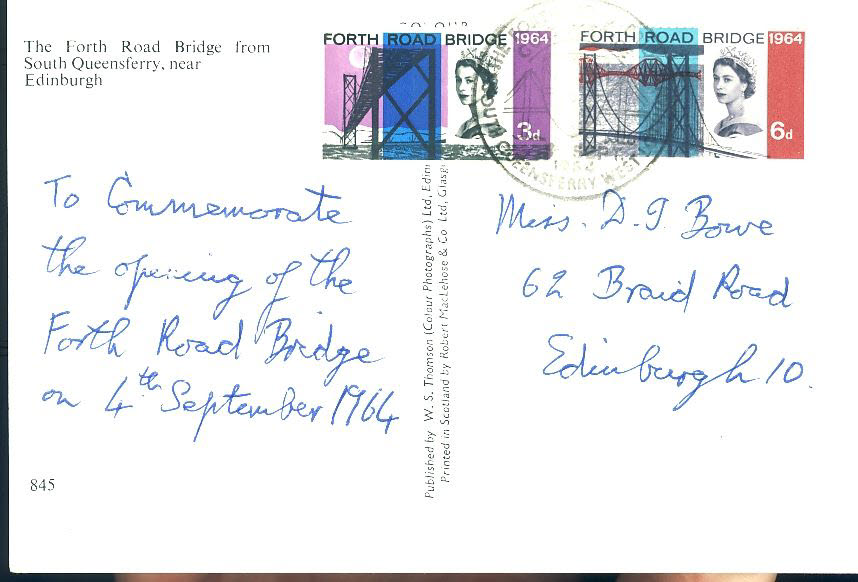 The Forth Road Bridge from
South Queensferry, near
Edinburgh
COLOUR
FORTH ROAD BRIDGE 1964
3d
FORTH ROAD BRIDGE 1964
6d
QUEENSFERRY WEST
To Commemorate
the opening of the
Forth Road Bridge
on 4th September 1964
845
Published by W. S. Thomson (Colour Photographs) Ltd, Edin
Printed in Scotland by Robert MacLehose & Co Ltd, Glasg
Miss. D. J. Bowe
62 Braid Road
Edinburgh 10.